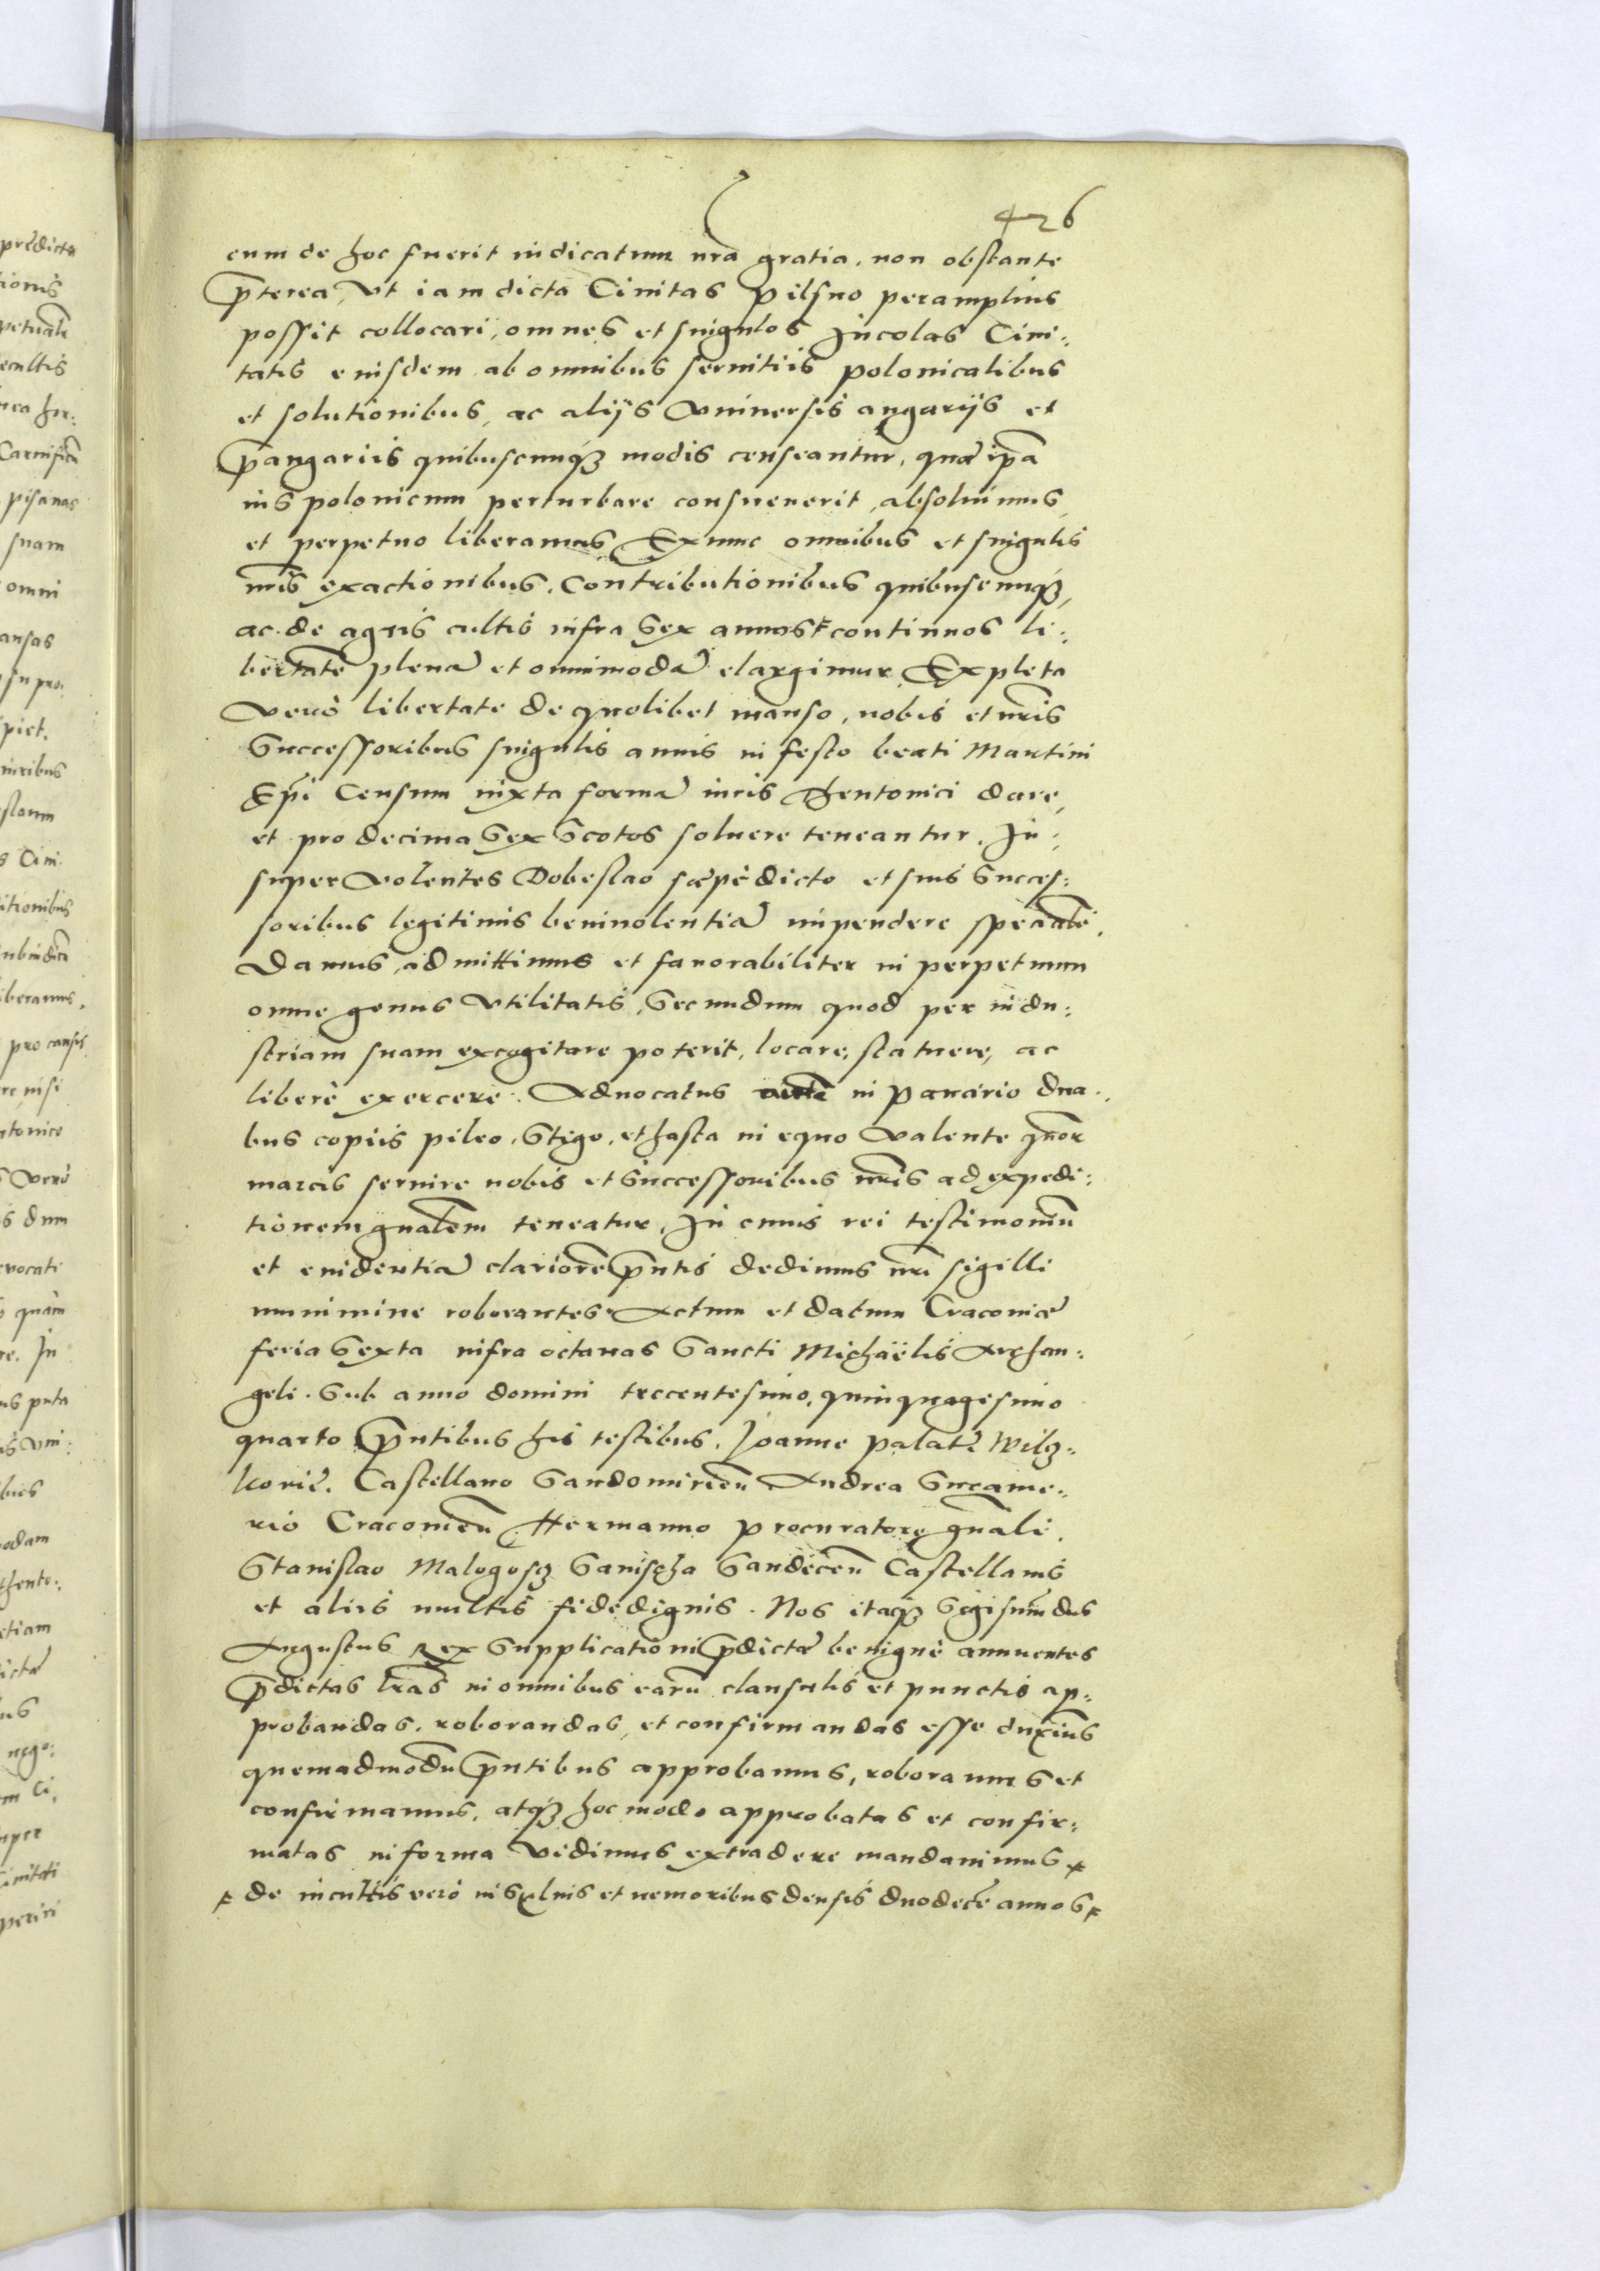 426
eum de hoc fuerit iudicatum nra gratia, non obstante
pterea, Vt iam dicta Ciuitas Pilsno peramplius
possit collocari, omnes et singulos Incolas Ciui:
tatis eiusdem ab omnibus seruitiis polonicalibus
et solutionibus, ac alijs vniuersis angarijs et
pangariis quibuscunq3 modis censeantur, quæ ipa
ius polonicum perturbare consueuerit, absoluimus,
et perpetuo liberamus, Ex nunc omnibus et singulis
nris exactionibus, Contributionibus quibuscunq3,
ac de agris cultis infra Sex annos continuos li:
bertate plenā et omnimodā elargimur, Expleta
verò libertate de quolibet manso, nobis et nris
Successoribus singulis annis in festo beati Martini
Epi Censum iuxta formā iuris Theutonici dare,
et pro decima Sex Scotos soluere teneantur. In:
super volentes Dobeslao sæpèdicto et suis Succes:
soribus legitimis beniuolentiā impendere speciale,
Damus, admittimus et fauorabiliter in perpetuum
omne genus vtilitatis, Secundum quod per indu:
striam suam excogitare poterit, locare, statuere, ac
liberè exercere. Aduocatus aute in Panario dua:
bus copiis pileo, Stigo, et hasta in equo Valente quor
marcis seruire nobis et Successoribus nris ad expedi:
tionem gnalem teneatur, In cuius rei testimoniu
et euidentiā clariore pntis dedimus nri sigilli
munimine roborantes. Actum et datum Cracouiæ
feria Sexta infra octauas Sancti Michaëlis Archan:
geli. Sub anno domini trecentesimo, quinquagesimo
quarto pntibus his testibus, Joanne palat Wilcz:
kouie, Castellano Sandomirien Andrea Succame:
rio Cracouien Hermanno Procuratore gnali,
Stanislao Malogosz Sanischa Sandecen Castellanis
et aliis multis fidedignis. Nos itaq3 Sigismudus
Augustus Rex Supplicationi pdictæ benignè annuentes
pdictas lras in omnibus earu clausulis et punctis ap:
probandas, roborandas, et confirmandas esse duximus
quemadmodu pntibus approbamus, roboramus et
confirmamus, atq3 hoc modo approbatas et confir:
matas in forma vidimus extradere mandauimus
de incultis verò in Syluis et nemoribus densis duodece annos